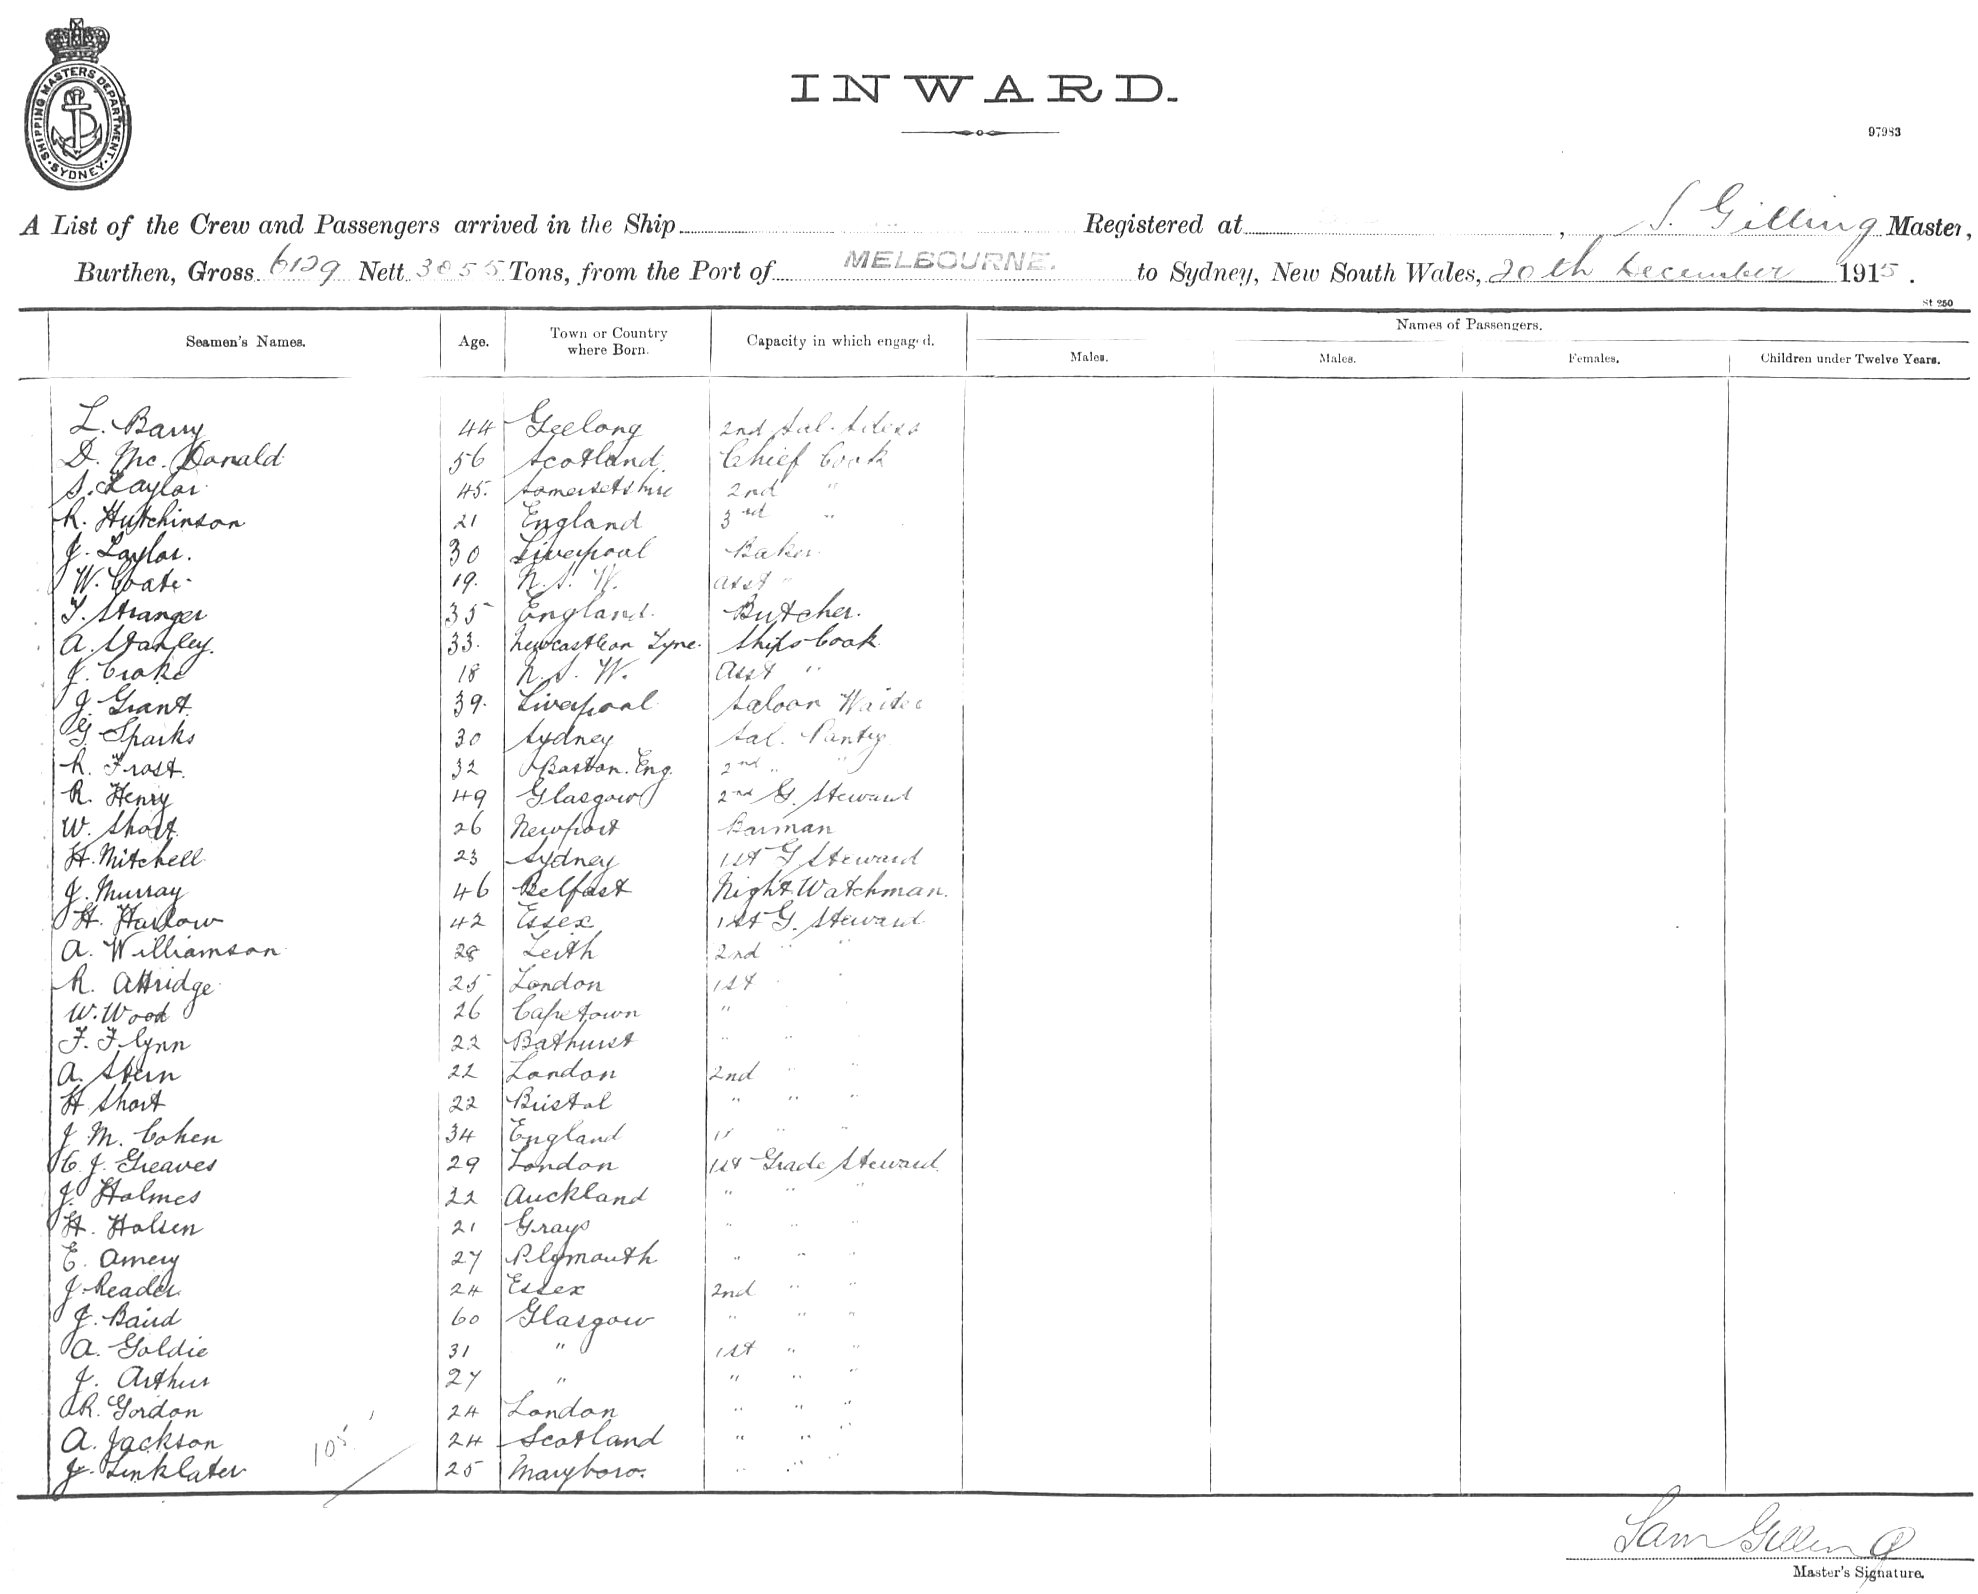 SHIPPING MASTERS DEPARTMENT · SYDNEY ·
INWARD.
97983
A List of the Crew and Passengers arrived in the Ship Registered at , S. Gilling Master,
Burthen, Gross 6129 Nett 3055 Tons, from the Port of MELBOURNE. to Sydney, New South Wales, 20th December 1915.
St 250
Seamen's Names. Age. Town or Country where Born. Capacity in which engaged. Names of Passengers.
Males. Males. Females. Children under Twelve Years.
L. Barry 44 Geelong 2nd Sal.
D. Mc. Donald 56 Scotland. Chief Cook
S. Taylor 45. Somersetshire 2nd "
R. Hutchinson 21 England 3rd "
J. Taylor. 30 Liverpool Baker
W. Coate 19. N. S. W. Asst "
T. Stranger 35 England. Butcher.
A. Stanley. 33. Newcastle on Tyne. Ships Cook
J. Croke 18 N. S. W. Asst "
J. Grant 39. Liverpool Saloon Waiter
G. Sparks 30 Sydney Sal. Pantry
R. Frost. 32 Boston. Eng. 2nd " "
R. Henry 49 Glasgow 2nd G. Steward
W. Short. 26 Newport Barman
H. Mitchell 23 Sydney 1st G Steward
J. Murray 46 Belfast Night Watchman.
H. Harlow 42 Essex 1st G. Steward
A. Williamson 28 Leith 2nd " "
R. Attridge 25 London 1st " "
W. Wood 26 Capetown " " "
F. Flynn 22 Bathurst " " "
A. Stern 22 London 2nd " "
H Short 22 Bristol " " "
J M. Cohen 34 England " " "
C. J. Greaves 29 London 1st Grade Steward
J. Holmes 22 Auckland " " "
H. Holsen 21 Grays " " "
E. Amery 27 Plymouth " " "
J. Reader 24 Essex 2nd " "
J. Baird 60 Glasgow " " "
A. Goldie 31 " 1st " "
J. Arthur 27 " " " "
R. Gordon 24 London " " "
A. Jackson 24 Scotland " " "
J. Linklater 25 Maryboro. " " "
105
Sam Gilling
Master's Signature.